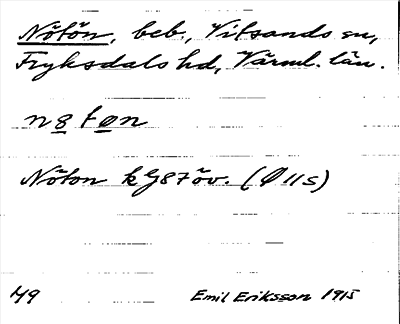 Nötön, beb., Vitsands sn,
Fryksdals hd, Värml. län.
nøtøn
Nöton kG87öv. (Ø11S)
49
Emil Eriksson 1915